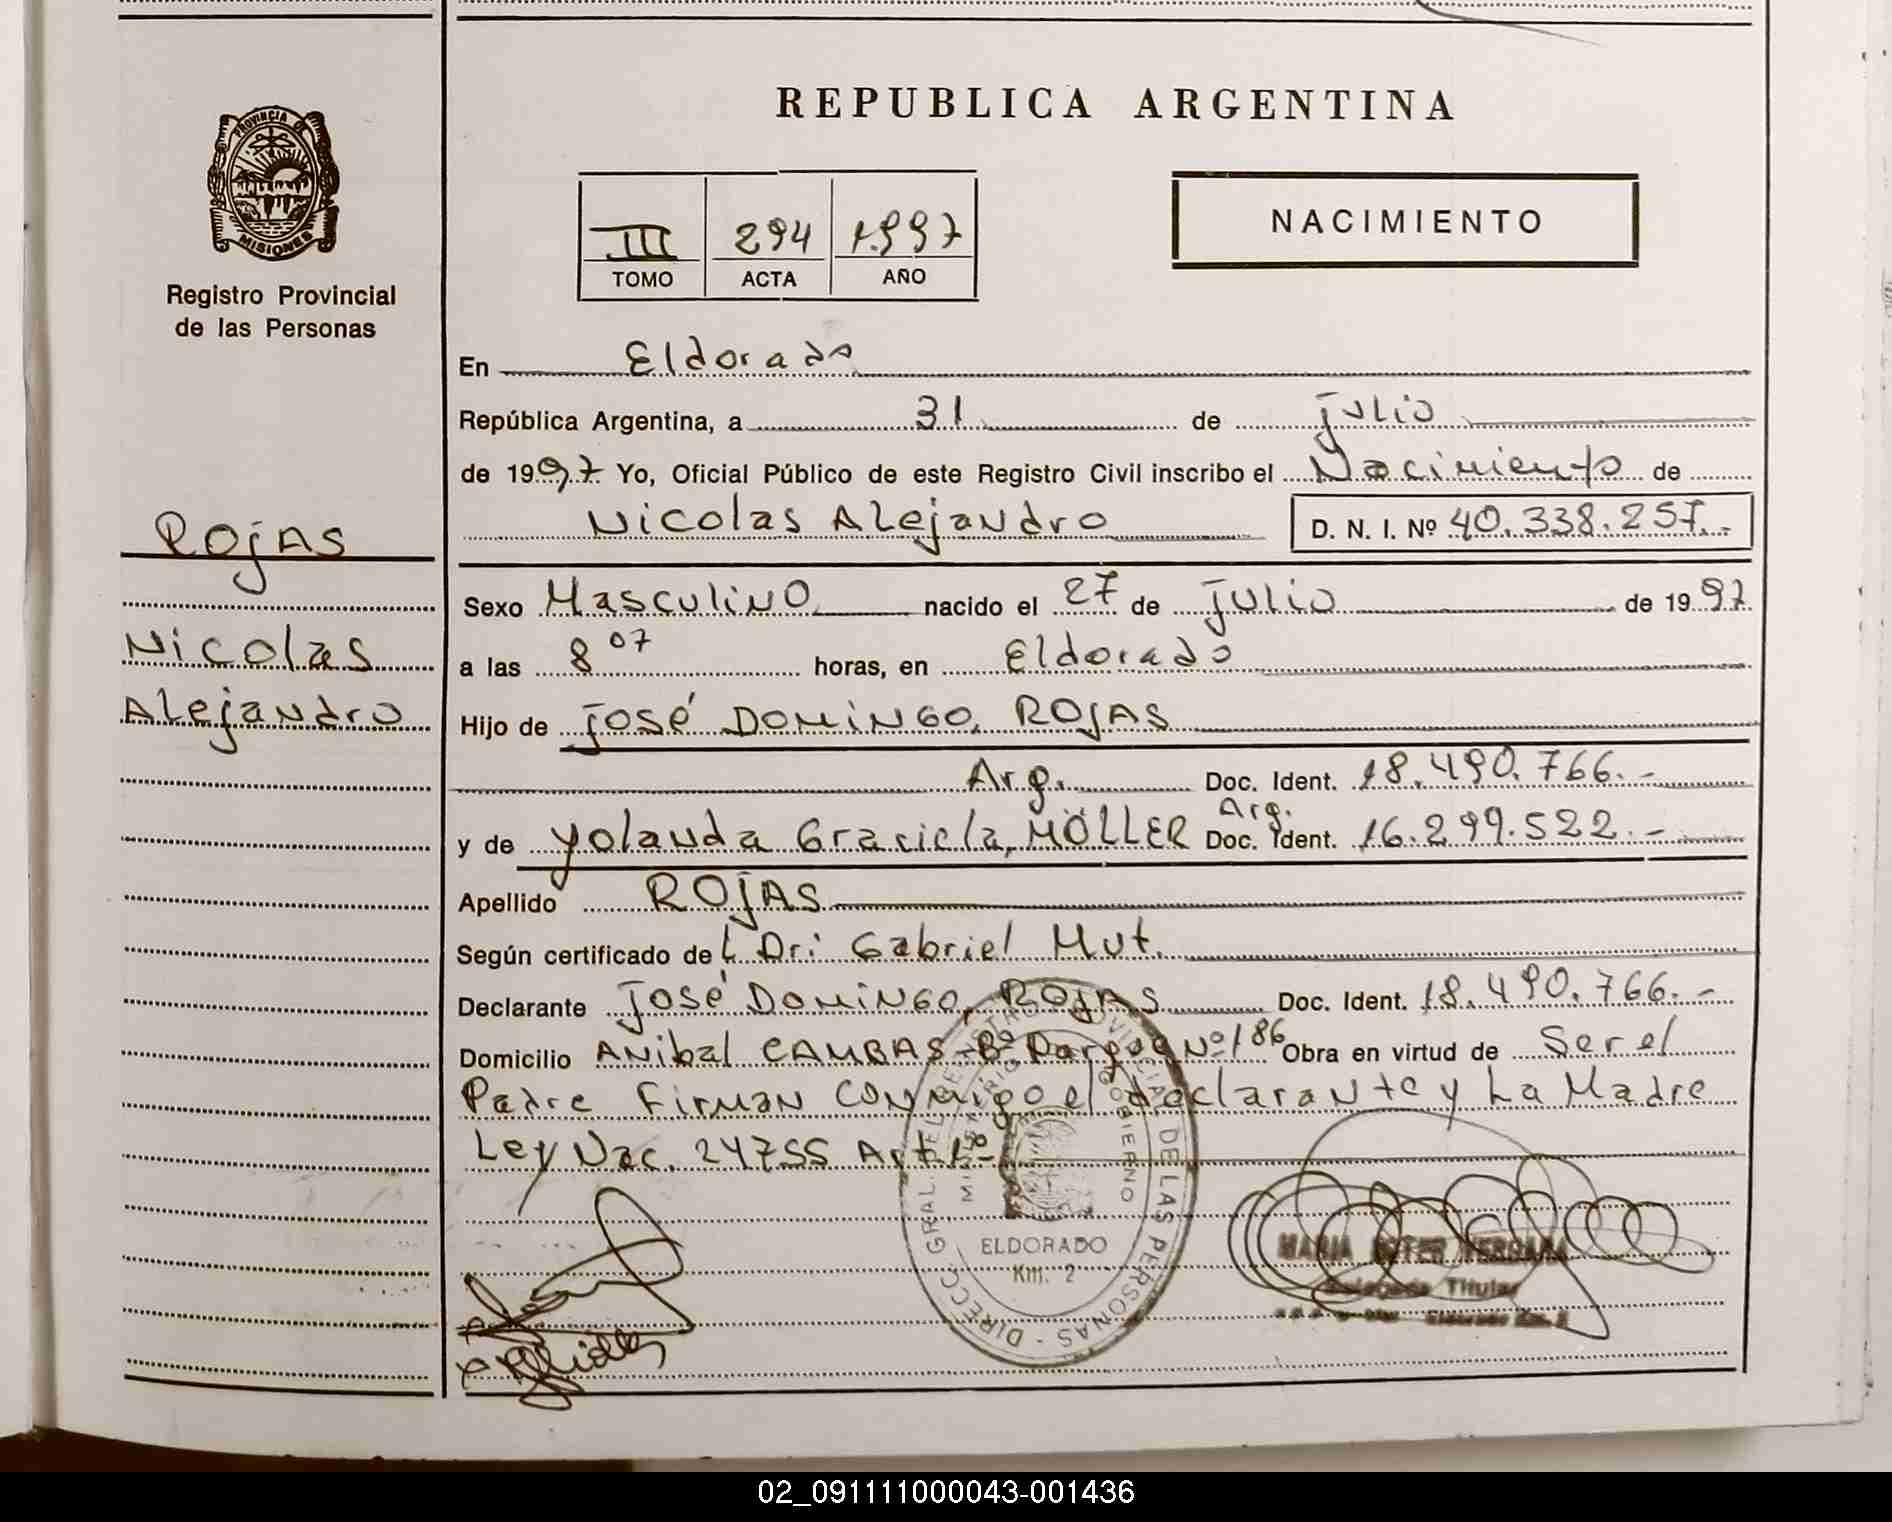 REPUBLICA ARGENTINA
PROVINCIA DE
MISIONES
Registro Provincial
de las Personas
III 294 1.997
TOMO ACTA AÑO
NACIMIENTO
Rojas
Nicolas
Alejandro
En Eldorado
República Argentina, a 31 de julio
de 1997 Yo, Oficial Público de este Registro Civil inscribo el Nacimiento de
Nicolas Alejandro D. N. I. Nº 40.338.257.-
Sexo Masculino nacido el 27 de julio de 1997
a las 8 07 horas, en Eldorado
Hijo de José DOMINGO, ROJAS
Arg. Doc. Ident. 18.490.766.-
y de Yolanda Graciela, MÖLLER Arg. Doc. Ident. 16.299.522.-
Apellido ROJAS
Según certificado del Dr: Gabriel Mut.
Declarante José DOMINGO, ROJAS Doc. Ident. 18.490.766.-
Domicilio Anibal CAMBAS-Bº Parque Nº 186 Obra en virtud de Ser el
Padre Firman conmigo el declarante y La Madre
Ley Nac. 24755 Art 1º-
DIRECC. GRAL. DEL REGISTRO PROVINCIAL DE LAS PERSONAS -
MINISTERIO GOBIERNO
ELDORADO
Km. 2
MARIA ESTER VERGARA
Delegada Titular
Eldorado Km. 2
02_091111000043-001436